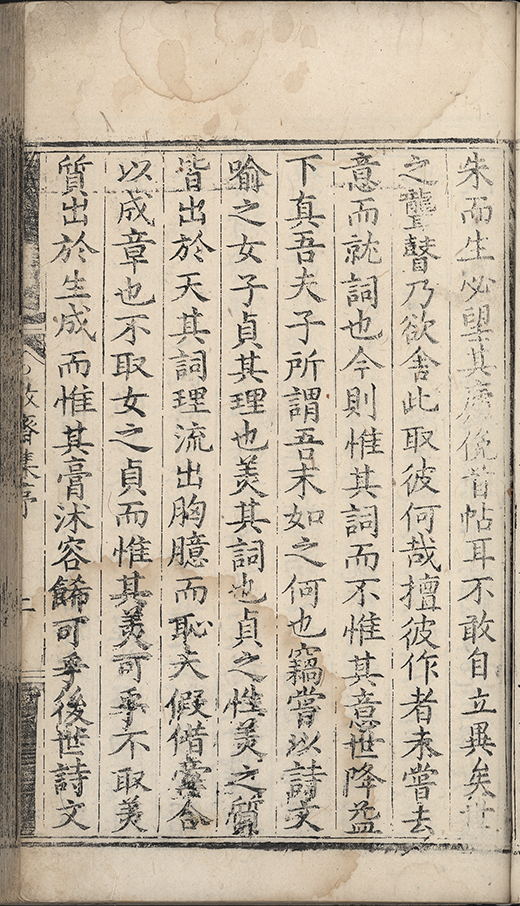 朱而生必望其唇俛首帖耳不敢自立異矣世
之聾瞽乃欲舍此取彼何哉擅彼作者未嘗去
意而就詞也今則惟其詞而不惟其意世降益
下真吾夫子所謂吾末如之何也竊嘗以詩文
喻之女子貞其理也美其詞也貞之性美之質
皆出於天其詞理流出胸臆而恥夫假借彙合
以成章也不取女之貞而惟其美可乎不取美
質出於生成而惟其膏沐容餙可乎後世詩文
集序
二